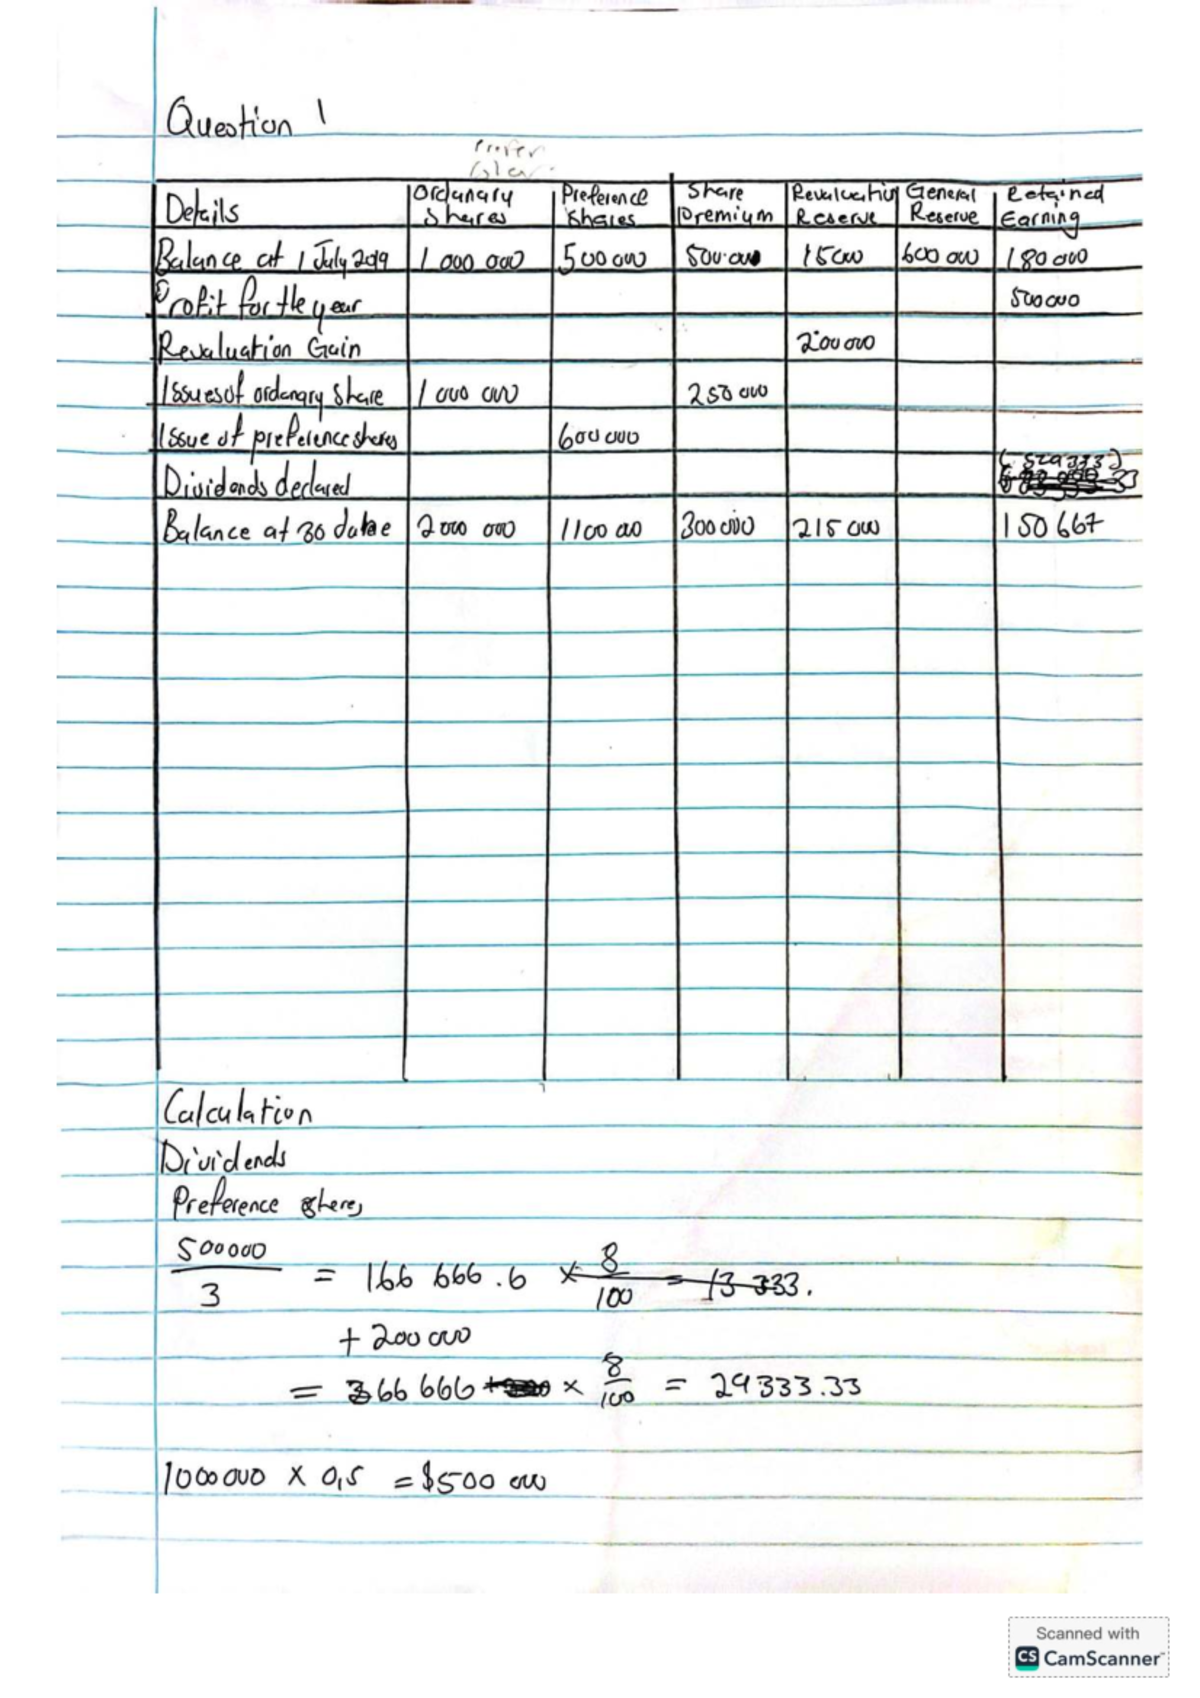 Question 1
Details Ordanary Shares Preference Shares Share Premium Revaluation Reserve General Reserve Retained Earning
Balance at 1 July 2019 1 000 000 500 000 500 000 15000 600 000 180 000
Profit for the year 500000
Revaluation Gain 200 000
Issues of ordanary share 1 000 000 250 000
Issue of preference shares 600 000
Dividends declared (529 333)
Balance at 30 2 000 000 1100 000 300 000 215 000 150 667
Calculation
Dividends
Preference shares
500000
3 = 166 666.6 × 8/100 = 13 333.
+ 200 000
= 366 666 × 8/100 = 29333.33
1000000 × 0,5 = $500 000
Scanned with
CS CamScanner